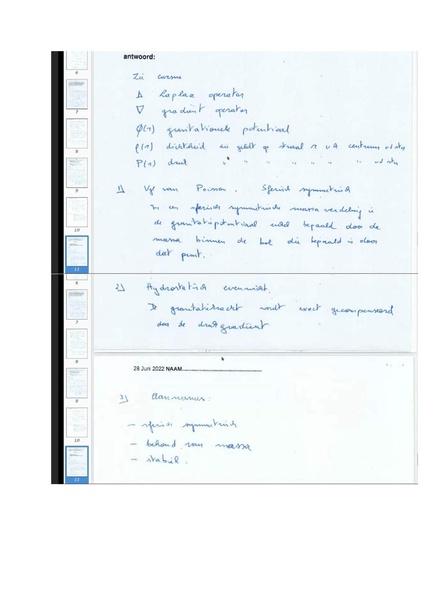 antwoord:
Zie cursus
Δ Laplace operator
∇ gradient operator
φ(r) gravitationele potentiaal
ρ(r) dichtheid en geldt op straal r v/h centrum
P(r) druk " " " " " "
1) Vgl van Poisson. Sferisch symmetrisch
In een sferisch symmetrische massa verdeling is
de gravitatiepotentiaal enkel bepaald door de
massa binnen de bol die bepaald is door
dat punt.
2) Hydrostatisch evenwicht.
De gravitatiekracht wordt exact gecompenseerd
door de drukgradient
28 Juni 2022 NAAM
3) Aannames:
- sferisch symmetrisch
- behoud van massa
- stabiel.
6
7
8
9
10
11
6
7
8
9
10
11